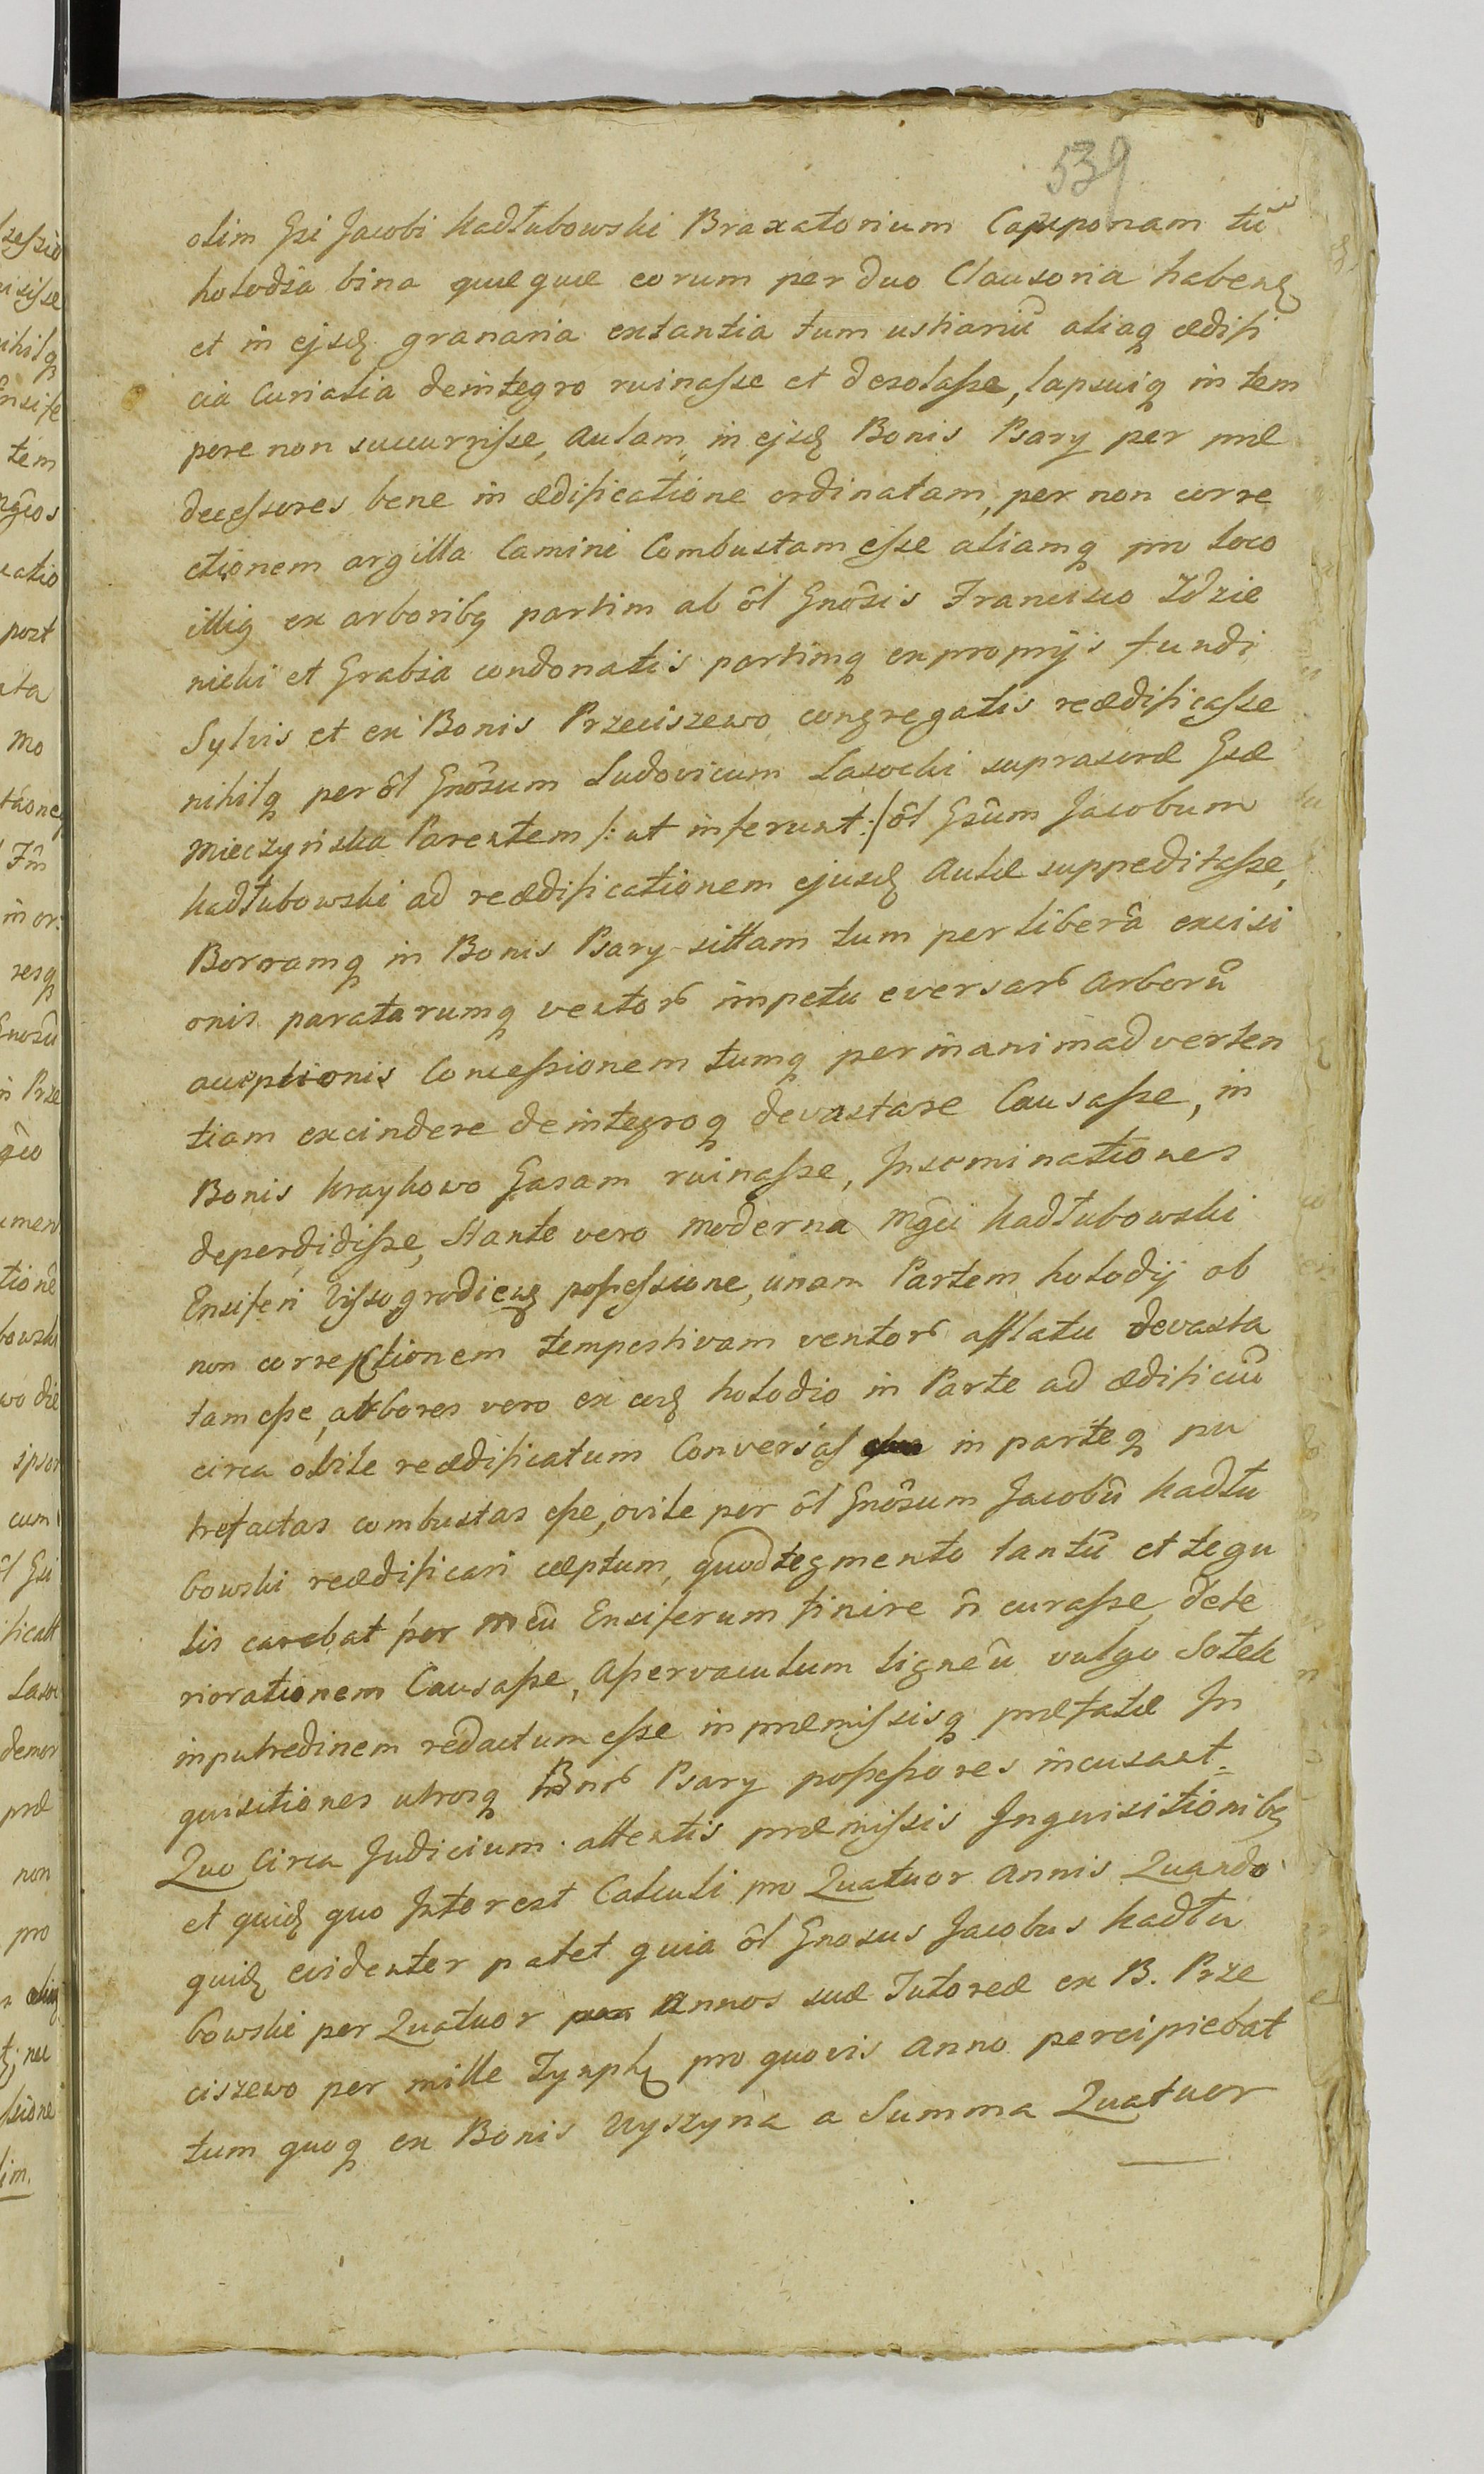 539
olim Gsi Jacobi Kadłubowski Braxatorium Cauponam tũ
holodia bina quæ quæ eorum per duo Clausoria habenȝ
et in ejsdȝ granaria extantia tum ustiariũ aliaqȝ ædifi
cia Curialia deintegro ruinasse et desolasse, lapsuiqȝ in tem
pore non succurrisse, Aulam in ejsdȝ Bonis Psary per præ
decessores bene in ædificatione ordinatam, per non corre
ctionem argilla Camini Combustam esse aliamqȝ pro loco
illiq ex arboribȝ partim ab ôl Gnôsis Francisco Idzie
nicki et Grabia condonatis partimqȝ ex proprijs fundi
Sylvis et ex Bonis Przeciszewo congregatis reædificasse
nihilqȝ per ôl Gnôsum Ludovicum Lasocki suprascræ Gsæ
Mieczyńska Parentem /: ut inferunt :/ ôl Gsûm Jacobum
Kadłubowski ad reædificationem ejusdȝ Aulæ suppeditasse,
Borramqȝ in Bonis Psary sittam tum per liberâ excisi
onis paratarumqȝ ventor impetu eversar Arborũ
Concessionem tumqȝ per inanimadverten
tiam excindere deintegroqȝ devastare Causasse, in
Bonis Kraykowo Gasam ruinasse, Inseminationes
deperdidisse, Stante vero moderna Mgci Kadłubowski
Ensiferi Vissogrodienȝ possessione, unam Partem holodij ob
non correctionem tempestivam ventor afflatu devasta
tam esse, arbores vero ex eodȝ holodio in Parte ad ædificiũ
circa ovile reædificatum Conversas in parteqȝ pu
trefactas combustas esse, ovile per ôl Gnôsum Jacobũ Kadłu
bowski reædificari cæptum, quod tegmento tantũ et tegu
lis carebat per Mcũ Ensiferum finire ñ curasse, dete
riorationem Causasse, Aservaculum ligneũ vulgo Sotek
in putredinem redactum esse in præmissisqȝ præfatæ In
quisitiones utrosqȝ Bnor Psary possessores incusant.
Quo Circa Judicium attentis præmissis Inquisitionibȝ
et quidȝ quo Interest Calculi pro Quatuor Annis Quando
quidȝ evidenter patet quia ôl Gnosus Jacobus Kadłu
bowski per Quatuor Annos suæ Tutoreæ ex B. Prze
ciszewo per mille Tynphȝ pro quovis Anno percipiebat
tum quoqȝ ex Bonis Uyszyna a Summa Quatuor